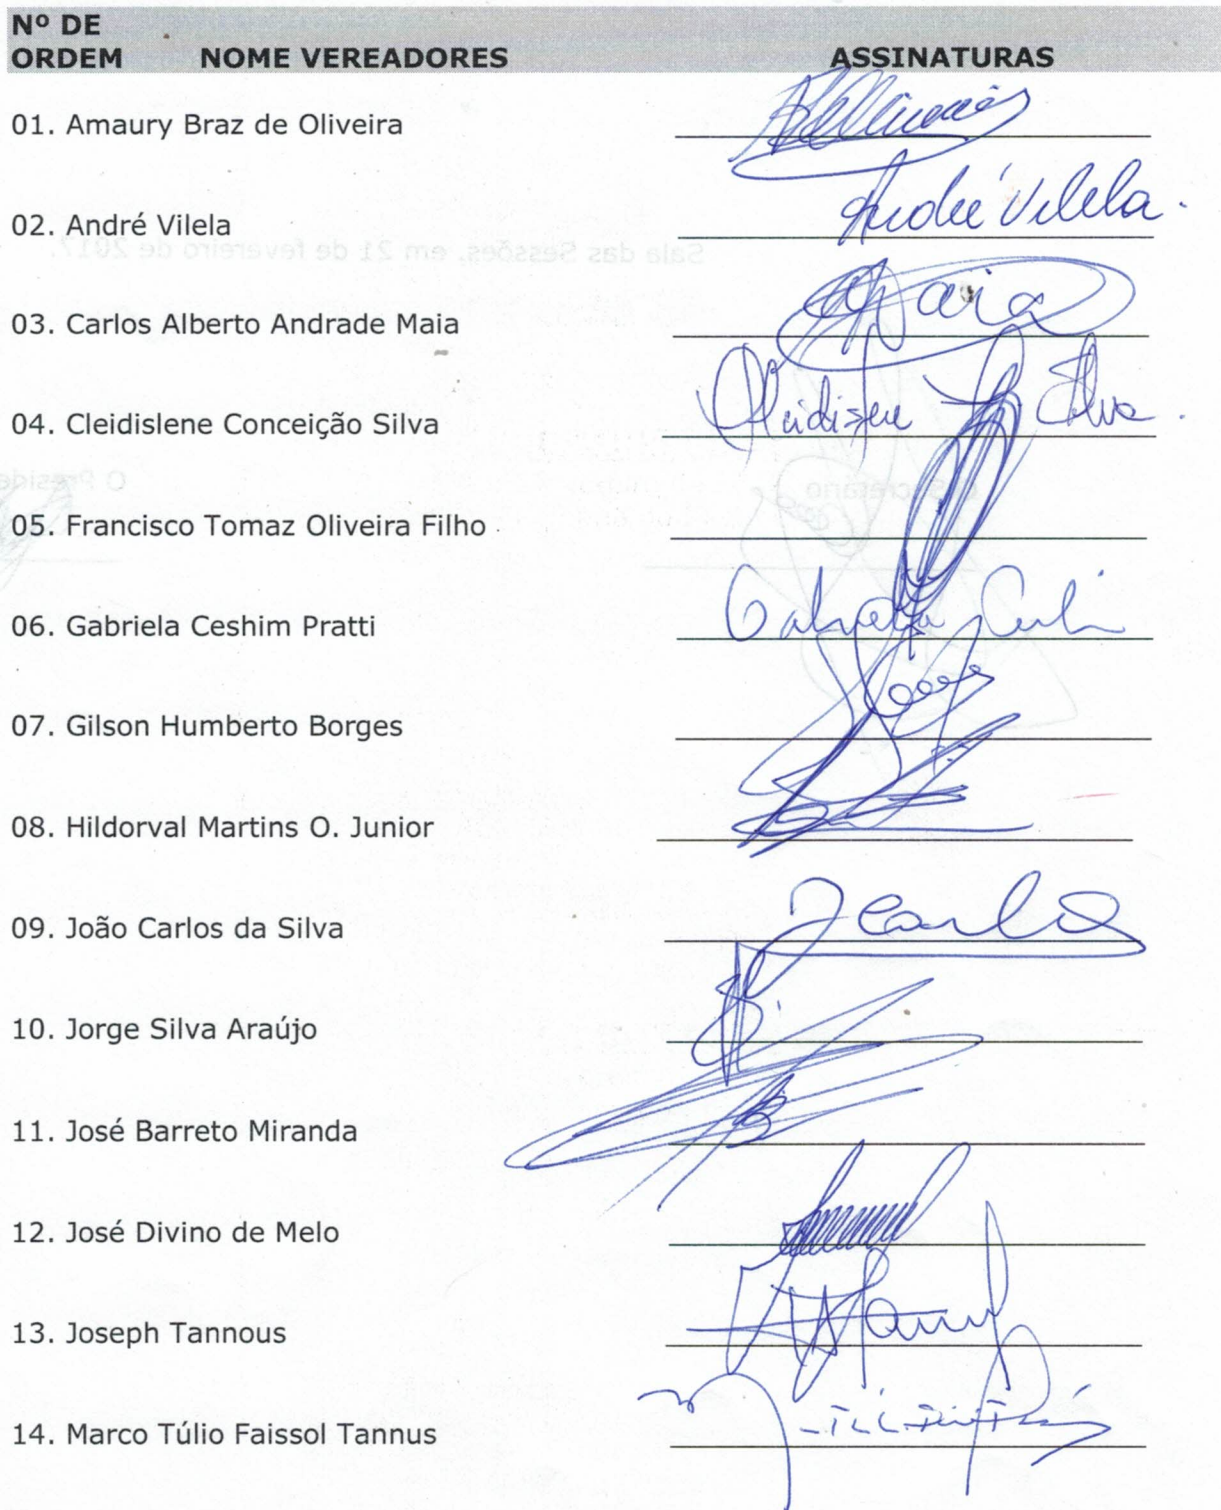 Nº DE
ORDEM NOME VEREADORES ASSINATURAS
01. Amaury Braz de Oliveira
02. André Vilela André Vilela.
03. Carlos Alberto Andrade Maia Maia
04. Cleidislene Conceição Silva Silva
05. Francisco Tomaz Oliveira Filho
06. Gabriela Ceshim Pratti Gabriela
07. Gilson Humberto Borges
08. Hildorval Martins O. Junior
09. João Carlos da Silva JCarlos
10. Jorge Silva Araújo
11. José Barreto Miranda
12. José Divino de Melo
13. Joseph Tannous
14. Marco Túlio Faissol Tannus
Sala das Sessões, em 21 de fevereiro de 2017.
O Secretário